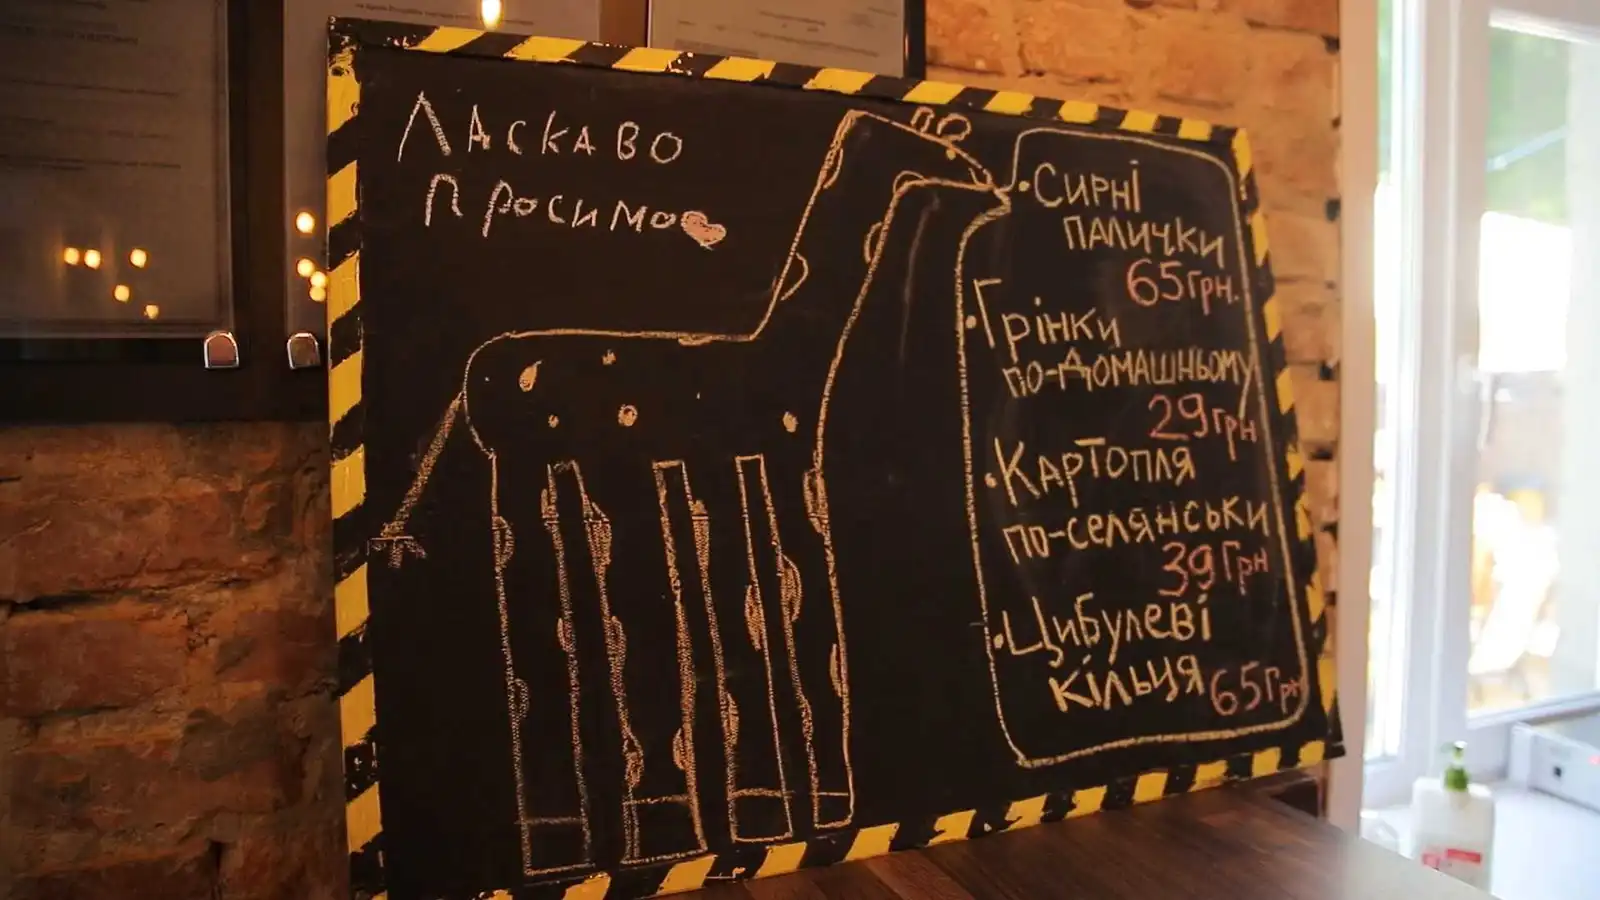 Ласкаво
просимо
• Сирні
палички
65 грн.
• Грінки
по-домашньому
29 грн
• Картопля
по-селянськи
39 грн
• Цибулеві
кільця 65 грн